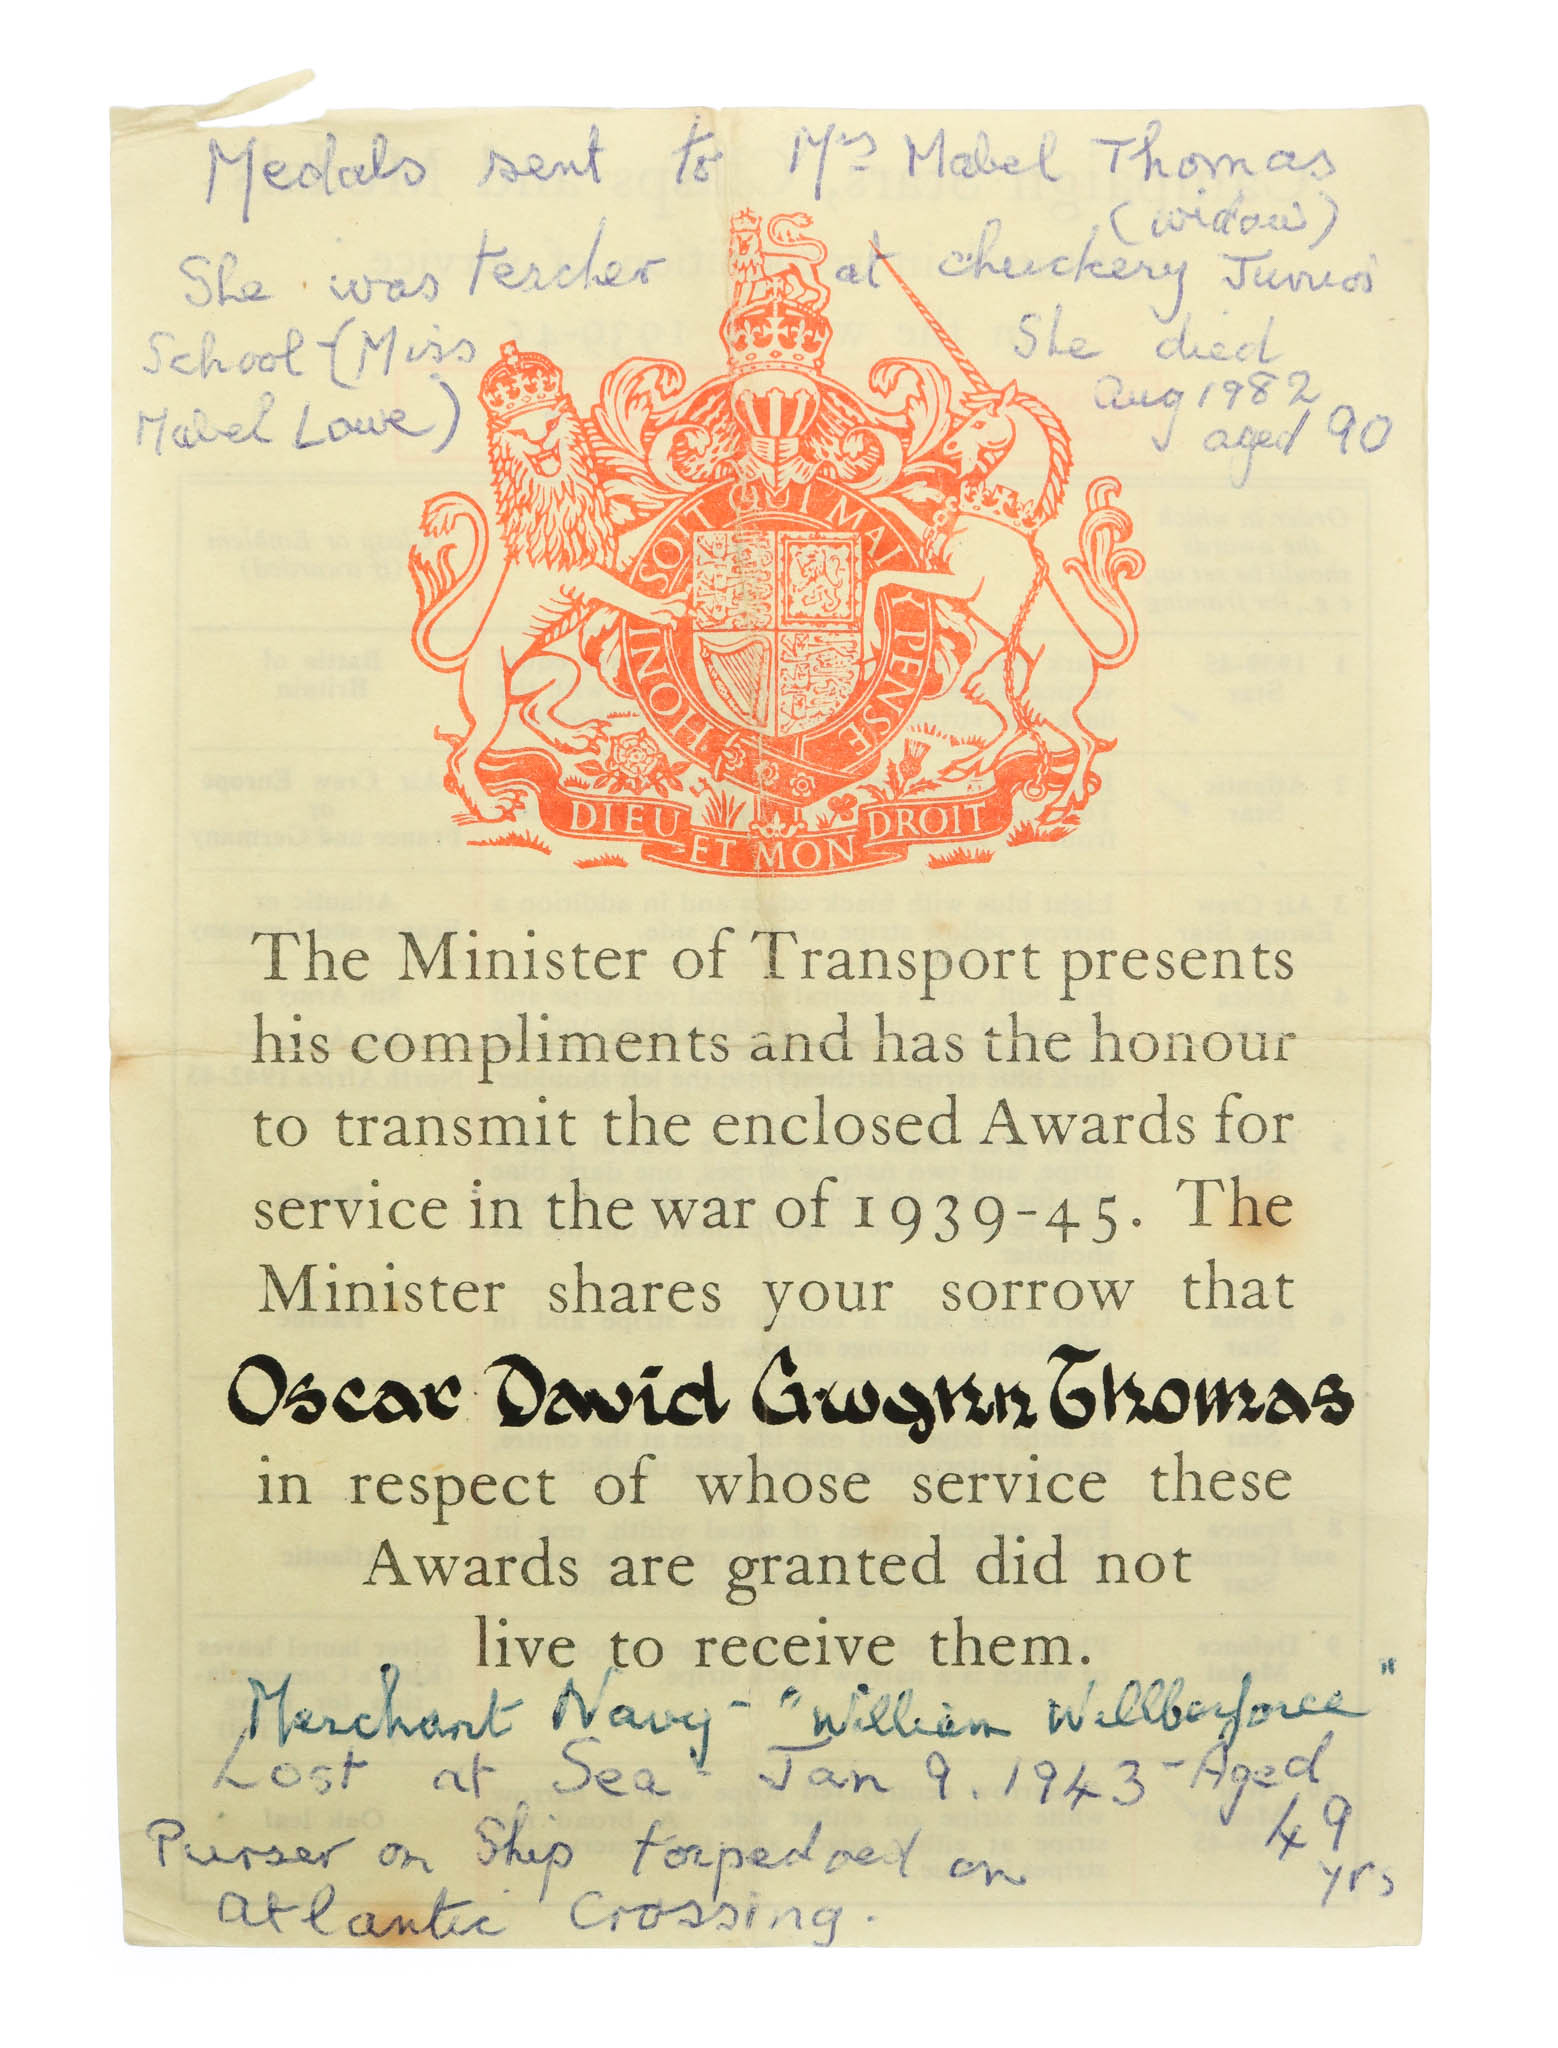 Medals sent to Mrs Mabel Thomas
(widow)
She was teacher at chuckery Junior
School (Miss
Mabel Lowe)
She died
Aug 1982
aged 90
HONI SOIT QUI MAL Y PENSE
DIEU ET MON DROIT
The Minister of Transport presents
his compliments and has the honour
to transmit the enclosed Awards for
service in the war of 1939-45. The
Minister shares your sorrow that
Oscar David Gwynn Thomas
in respect of whose service these
Awards are granted did not
live to receive them.
Merchant Navy - "William Willberforce"
Lost at Sea - Jan 9. 1943 - Aged
49
yrs
Purser on Ship torpedoed on
Atlantic Crossing.